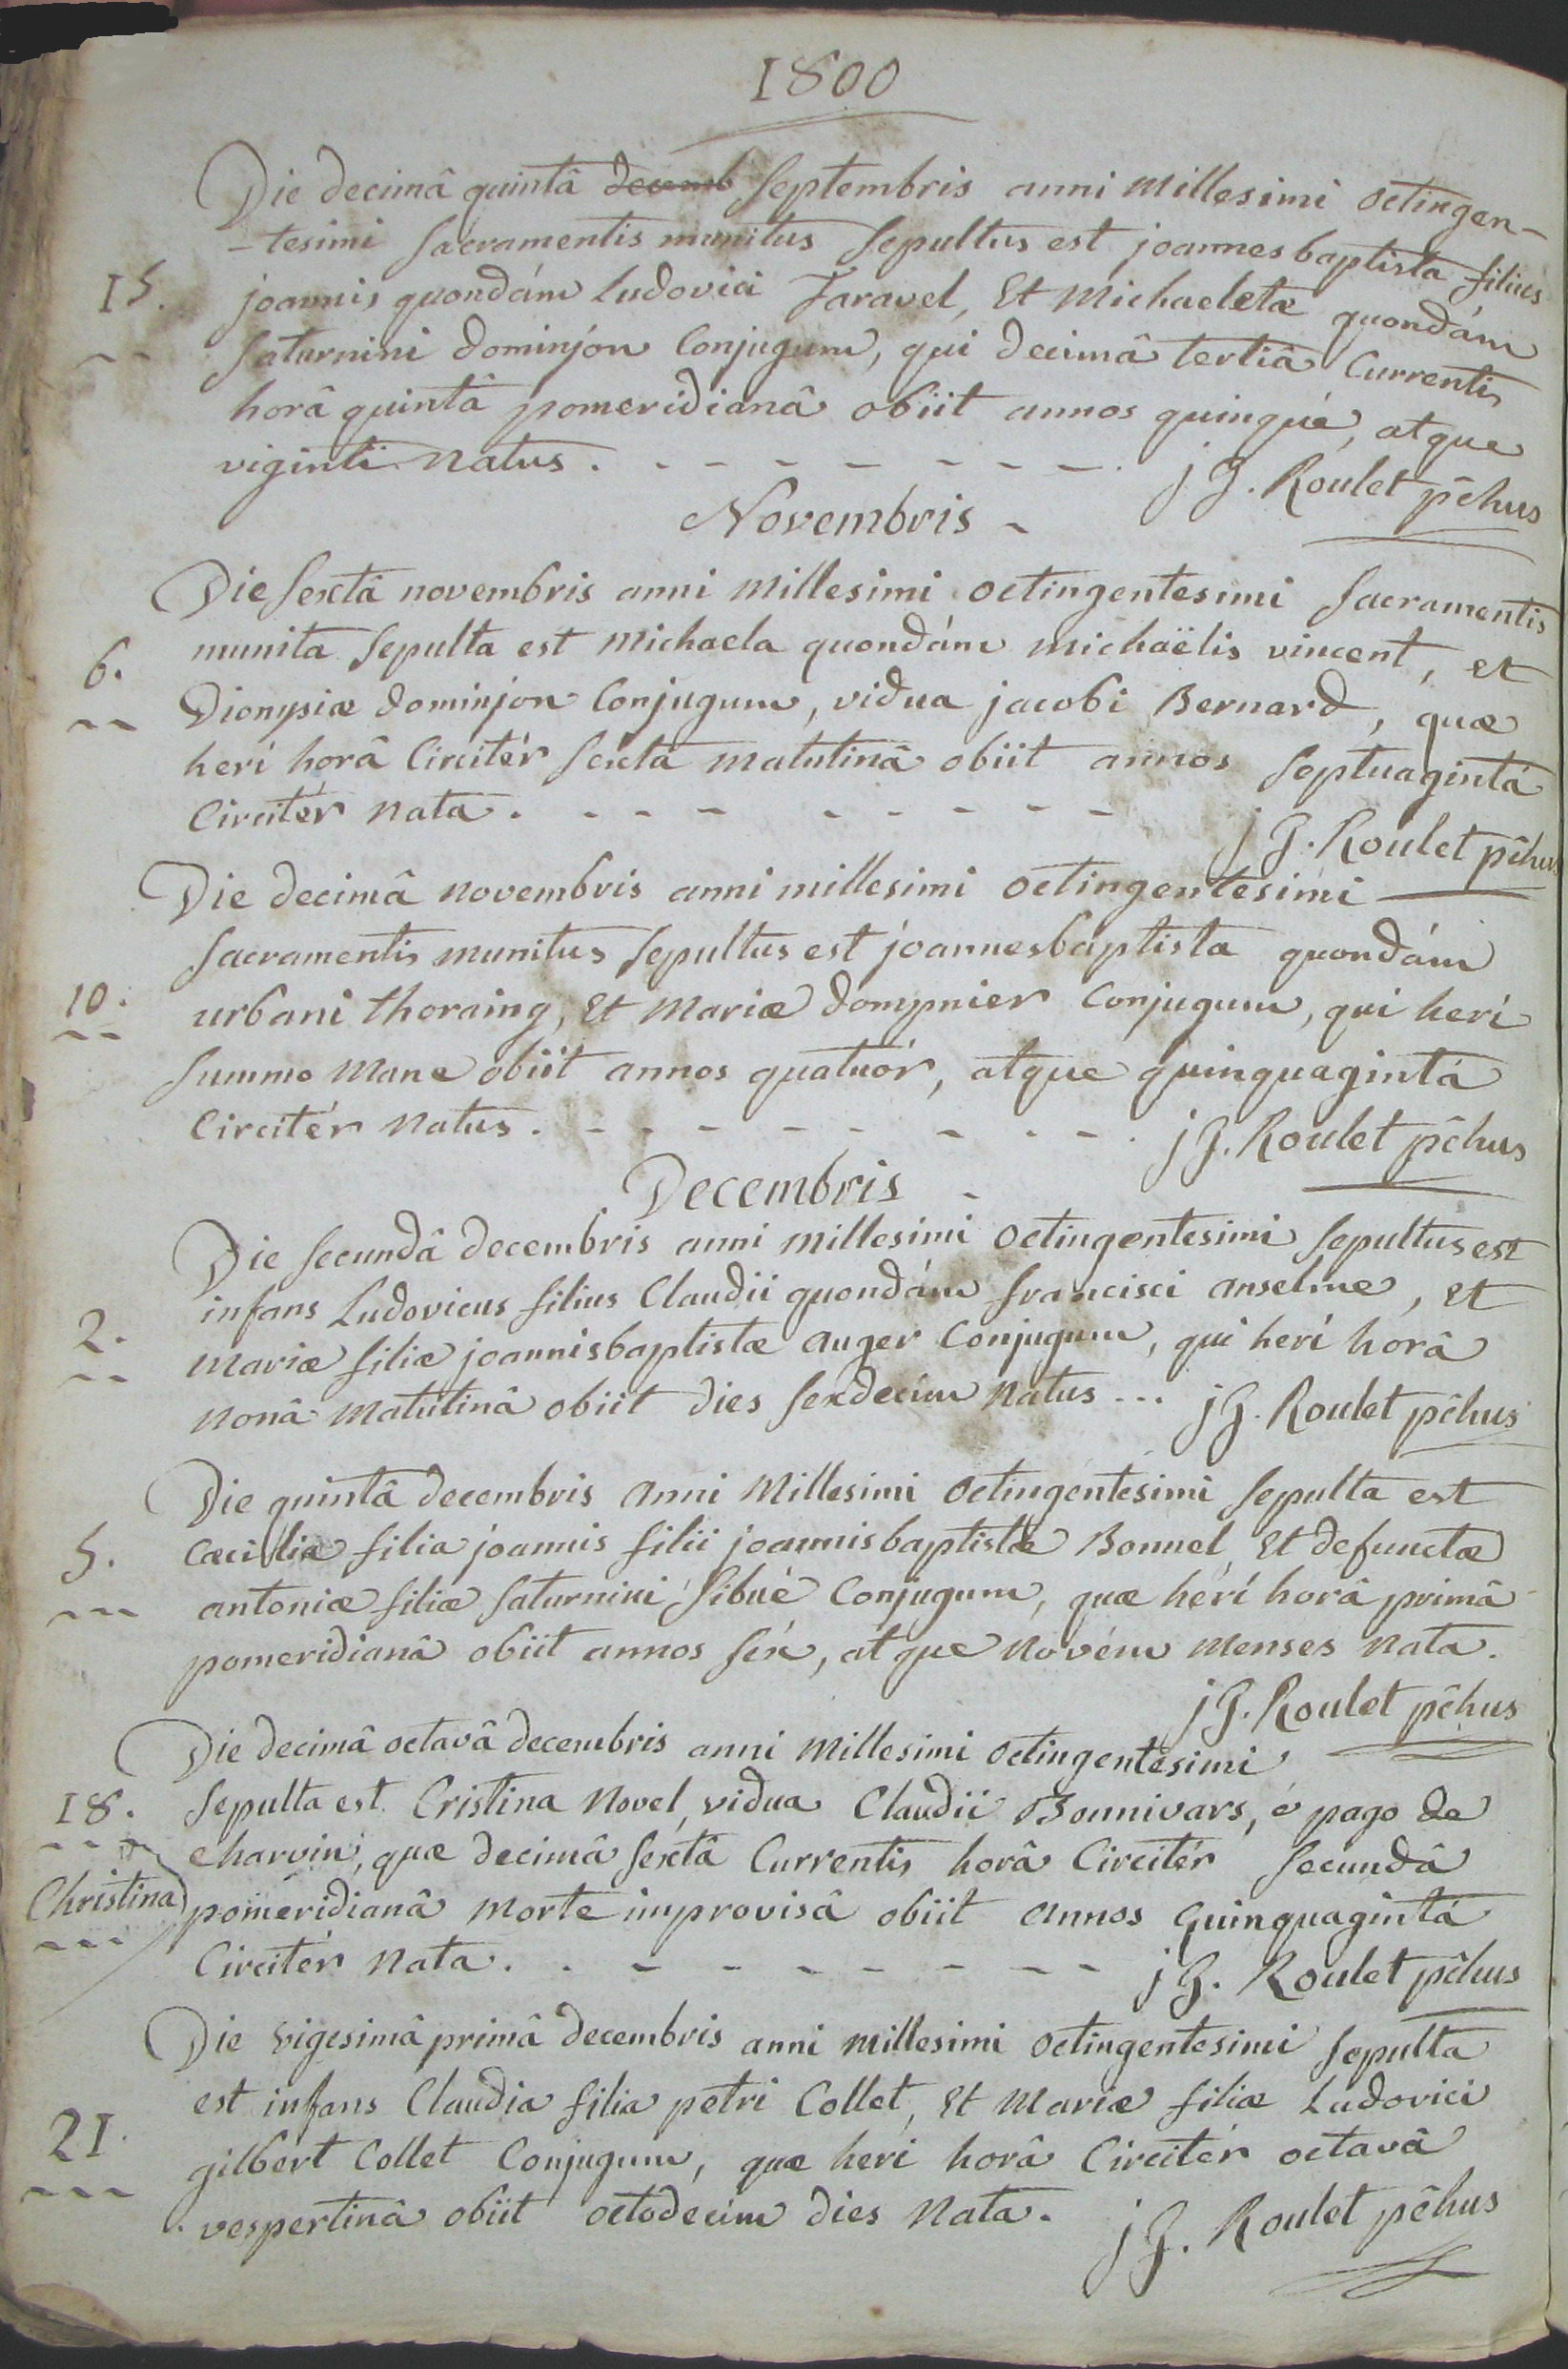 1800
Die decimâ quintâ decemb Septembris anni Millesimi octingen-
-tesimi Sacramentis munitus Sepultus est joannes baptista filius
15. joannis quondám ludovici Jaravel, Et Michaeletæ quondám
Saturnini dominjon Conjugum, qui decimâ tertiâ Currentis
horâ quintâ pomeridianâ obiit annos quinqué, atque
viginti natus. - - - - - - - - . j G. Roulet pc̄hus
Novembris -
Die Sextâ novembris anni Millesimi octingentesimi Sacramentis
munita Sepulta est Michaela quondám Michaëlis vincent, et
6. Dionysiæ dominjon Conjugum, vidua jacobi Bernard, quæ
herí horâ Circitér Sextâ Matutinâ obiit annos Septuagintá
Circitér Nata. - - - - - - - - j G. Roulet pc̄hus
Die decimâ novembris anni millesimi octingentesimi
Sacramentis munitus Sepultus est joannesbaptista quondám
10. urbani thoraing, Et Mariæ dompnier Conjugum, qui herí
Summo Mane obiit annos quatuór, atque quinquagintá
Circitér Natus. - - - - - - - - . j G. Roulet pc̄hus
Decembris -
Die Secundâ decembris anni Millesimi octingentesimi Sepultus est
infans Ludovicus filius Claudii quondám francisci anselme, et
2. Mariæ filiæ joannisbaptistæ auger Conjugum, qui herí horâ
Nonâ Matutinâ obiit dies Sexdecim Natus - - . j G. Roulet pc̄hus
Die quintâ decembris anni Millesimi octingentesimi Sepulta est
5. Cæcilia filia joannis filii joannisbaptistæ Bonnel, Et defunctæ
antoniæ filiæ Saturnini Sibué Conjugum, quæ herí horâ primâ
pomeridianâ obiit annos Séx, atque Novém Menses Nata.
j G. Roulet pc̄hus
Die decimâ octavâ decembris anni Millesimi octingentesimi
18. Sepulta est Cristina Novel, vidua Claudii Bonnivars, é pago de
charvin, quæ decimâ Sextâ Currentis horâ Circitér Secundâ
Christina pomeridianâ Morte improvisâ obiit annos Quinquagintá
Circitér Nata. - - - - - - - - j G. Roulet pc̄hus
Die vigesimâ primâ decembris anni Millesimi octingentesimi Sepulta
est infans Claudia filia petri Collet, Et Mariæ filiæ Ludovici
21. gilbert Collet Conjugum, quæ herí horâ Circitér octavâ
vespertinâ obiit octodecim dies Nata. j G. Roulet pc̄hus